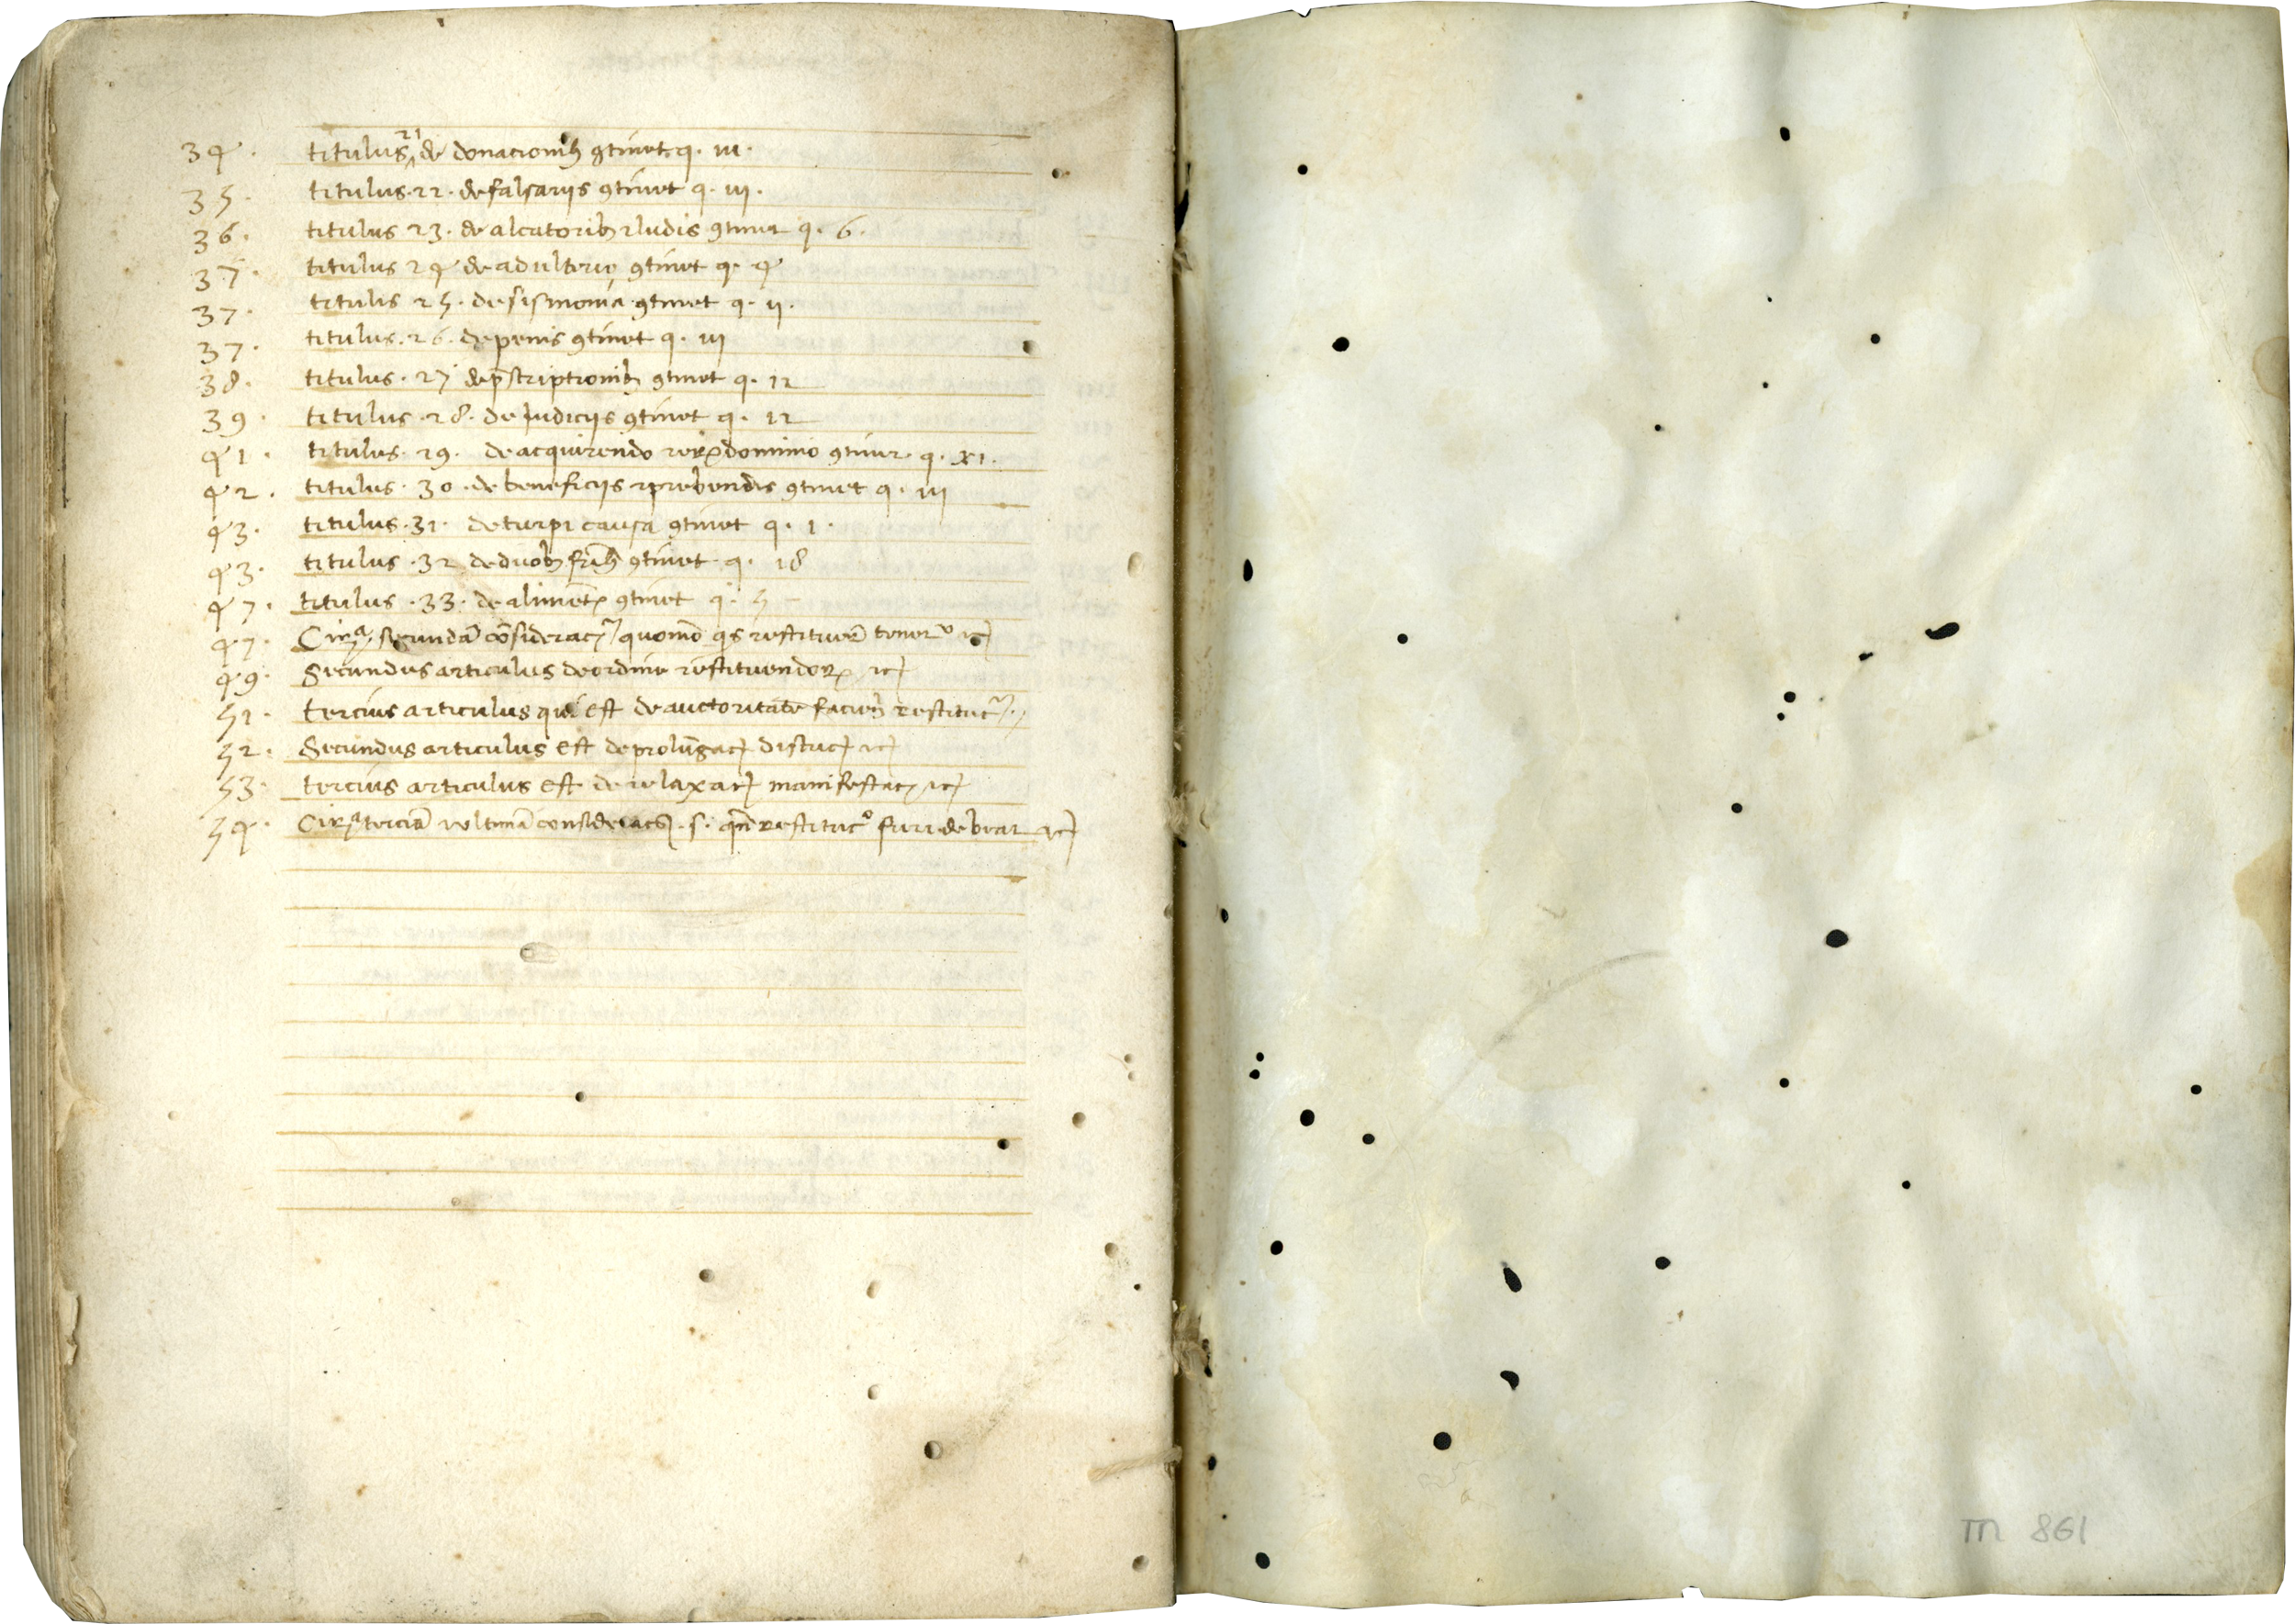 34. titulus 21 de donacionibꝫ ꝯtinet q. iii.
35. titulus. 22. de falsariis ꝯtinet q. iii.
36. titulus 23. de aleatoribꝫ ⁊ ludis ꝯtinet q. 6.
37. titulus 24 de adulterio ꝯtinet q. 4
37. titulus 25. de sismonia ꝯtinet q. ii.
37. titulus. 26. de penis ꝯtinet q. iii
38. titulus. 27 de p̄scriptionibꝫ ꝯtinet q. 12
39. titulus. 28. de Iudiciis ꝯtinet q. 12
41. titulus. 29. de acquirendo rerꝝ dominio ꝯtinet. q. xi.
42. titulus. 30. de beneficiis ⁊ prebendis ꝯtinet q. iii
43. titulus. 31. de turpi causa ꝯtinet q. 1.
43. titulus. 32 de duobꝫ fr̄ibꝫ ꝯtinet. q. 18
47. titulus. 33. de alimēt ꝯtinet q. 5
47. Circa secundā cōsideracō quomō qs restituere tenet ⁊c
49. Secundus articulus de ordine restituendoꝝ ⁊c
51. tercius articulus qui est de auctoritate facien̄ restituc
52. Secundus articulus est de prolūgac distuc ⁊c
53. tercius articulus est de relaxac manifestac ⁊c
54. Circa terciā ⁊ ultimā considerac. s. qn̄ restituco fieri debeat ⁊c
m 861